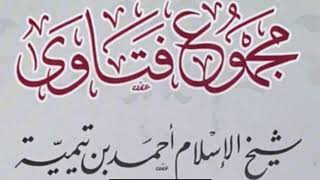 مجموع فتاوى
شيخ الإسلام أحمد بن تيمية